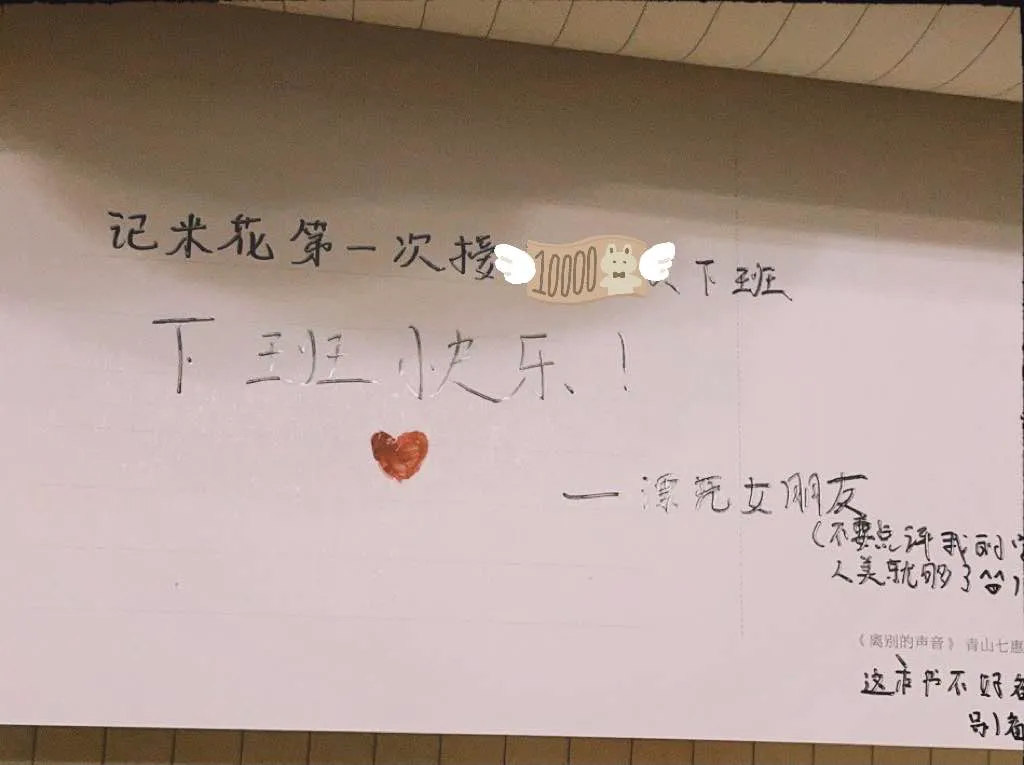 记米花第一次接 10000 下班
下班快乐！
—漂亮女朋友
(不要点评我的
人美就够了^^
《离别的声音》 青山七惠
这本书不好
别看